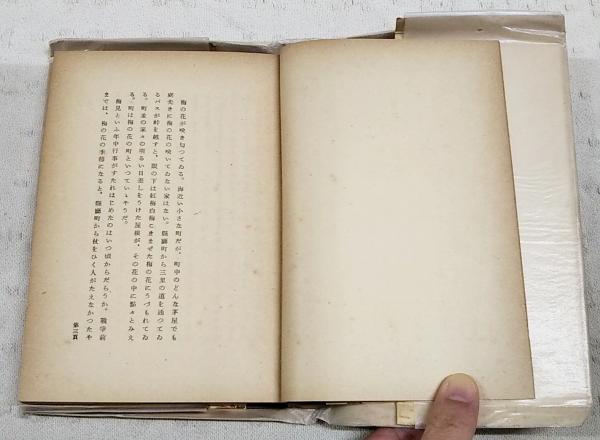 梅の花が咲き匂つてゐる。海近い小さな町だが、町中のどんな茅屋でも
庭先きに梅の花の咲いてゐない家はない。縣廳町から三里の道を通つてゐ
るバスが峠を越すと、眼の下は紅梅白梅こきまぜた梅の花にうづもれてゐ
る。町並の家々の明るい日差しをうけた屋根が、その花の中に點々とみえ
る。町は梅の花の町といつていゝやうだ。
梅見といふ年中行事がすたれはじめたのはいつ頃からだらうか。戰爭前
までは、梅の花の季節になると、縣廳町から杖をひく人がたえなかつたや
第三頁